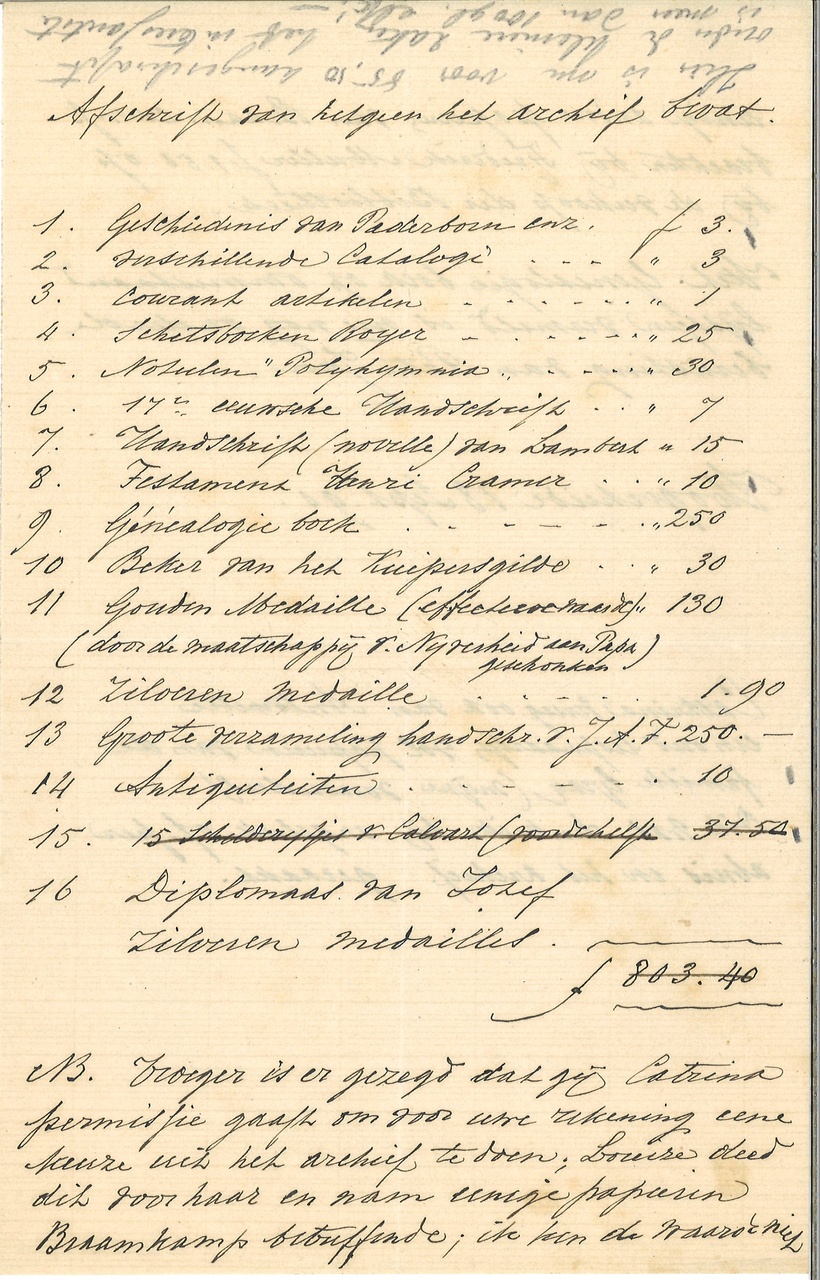 Hier is nu voor 85,50 aangeschaft
onder de kleinere zaken
is meer dan 100 gl.
Afschrift van hetgeen het archief bevat.
1. Geschiedenis van Paderborn enz. f 3.
2. verschillende Catalogi - - - " 3
3. courant artikelen - - - - - " 1
4. Schetsboeken Royer - - - - " 25
5. Notulen "Polyhymnia" - - - " 30
6. 17e eeuwsche Handschrift - - " 7
7. Handschrift (novelle) van Lambert " 15
8. Testament Henri Cramer - - " 10
9. Généalogie boek - - - - - " 250
10 Beker van het Kuipersgilde - - " 30
11 Gouden Medaille (effectieve waarde) " 130
(door de maatschappij v. Nyverheid aan Papa
geschonken)
12 Zilveren medaille - - - - 1.90
13 Groote verzameling handschr. v. J.A.F. 250.—
14 Antiquiteiten - - - - - 10
15. 15 Schilderytjes v. Calvart ( 37.50
16 Diplomaas van Jozef
Zilveren medailles.
f 803.40
NB. Vroeger is er gezegd dat gij Catrina
permissie gaaft om voor uwe rekening eene
keuze uit het archief te doen; Louize deed
dit voor haar en nam eenige papieren
Braamkamp betreffende; ik ken de waarde niet